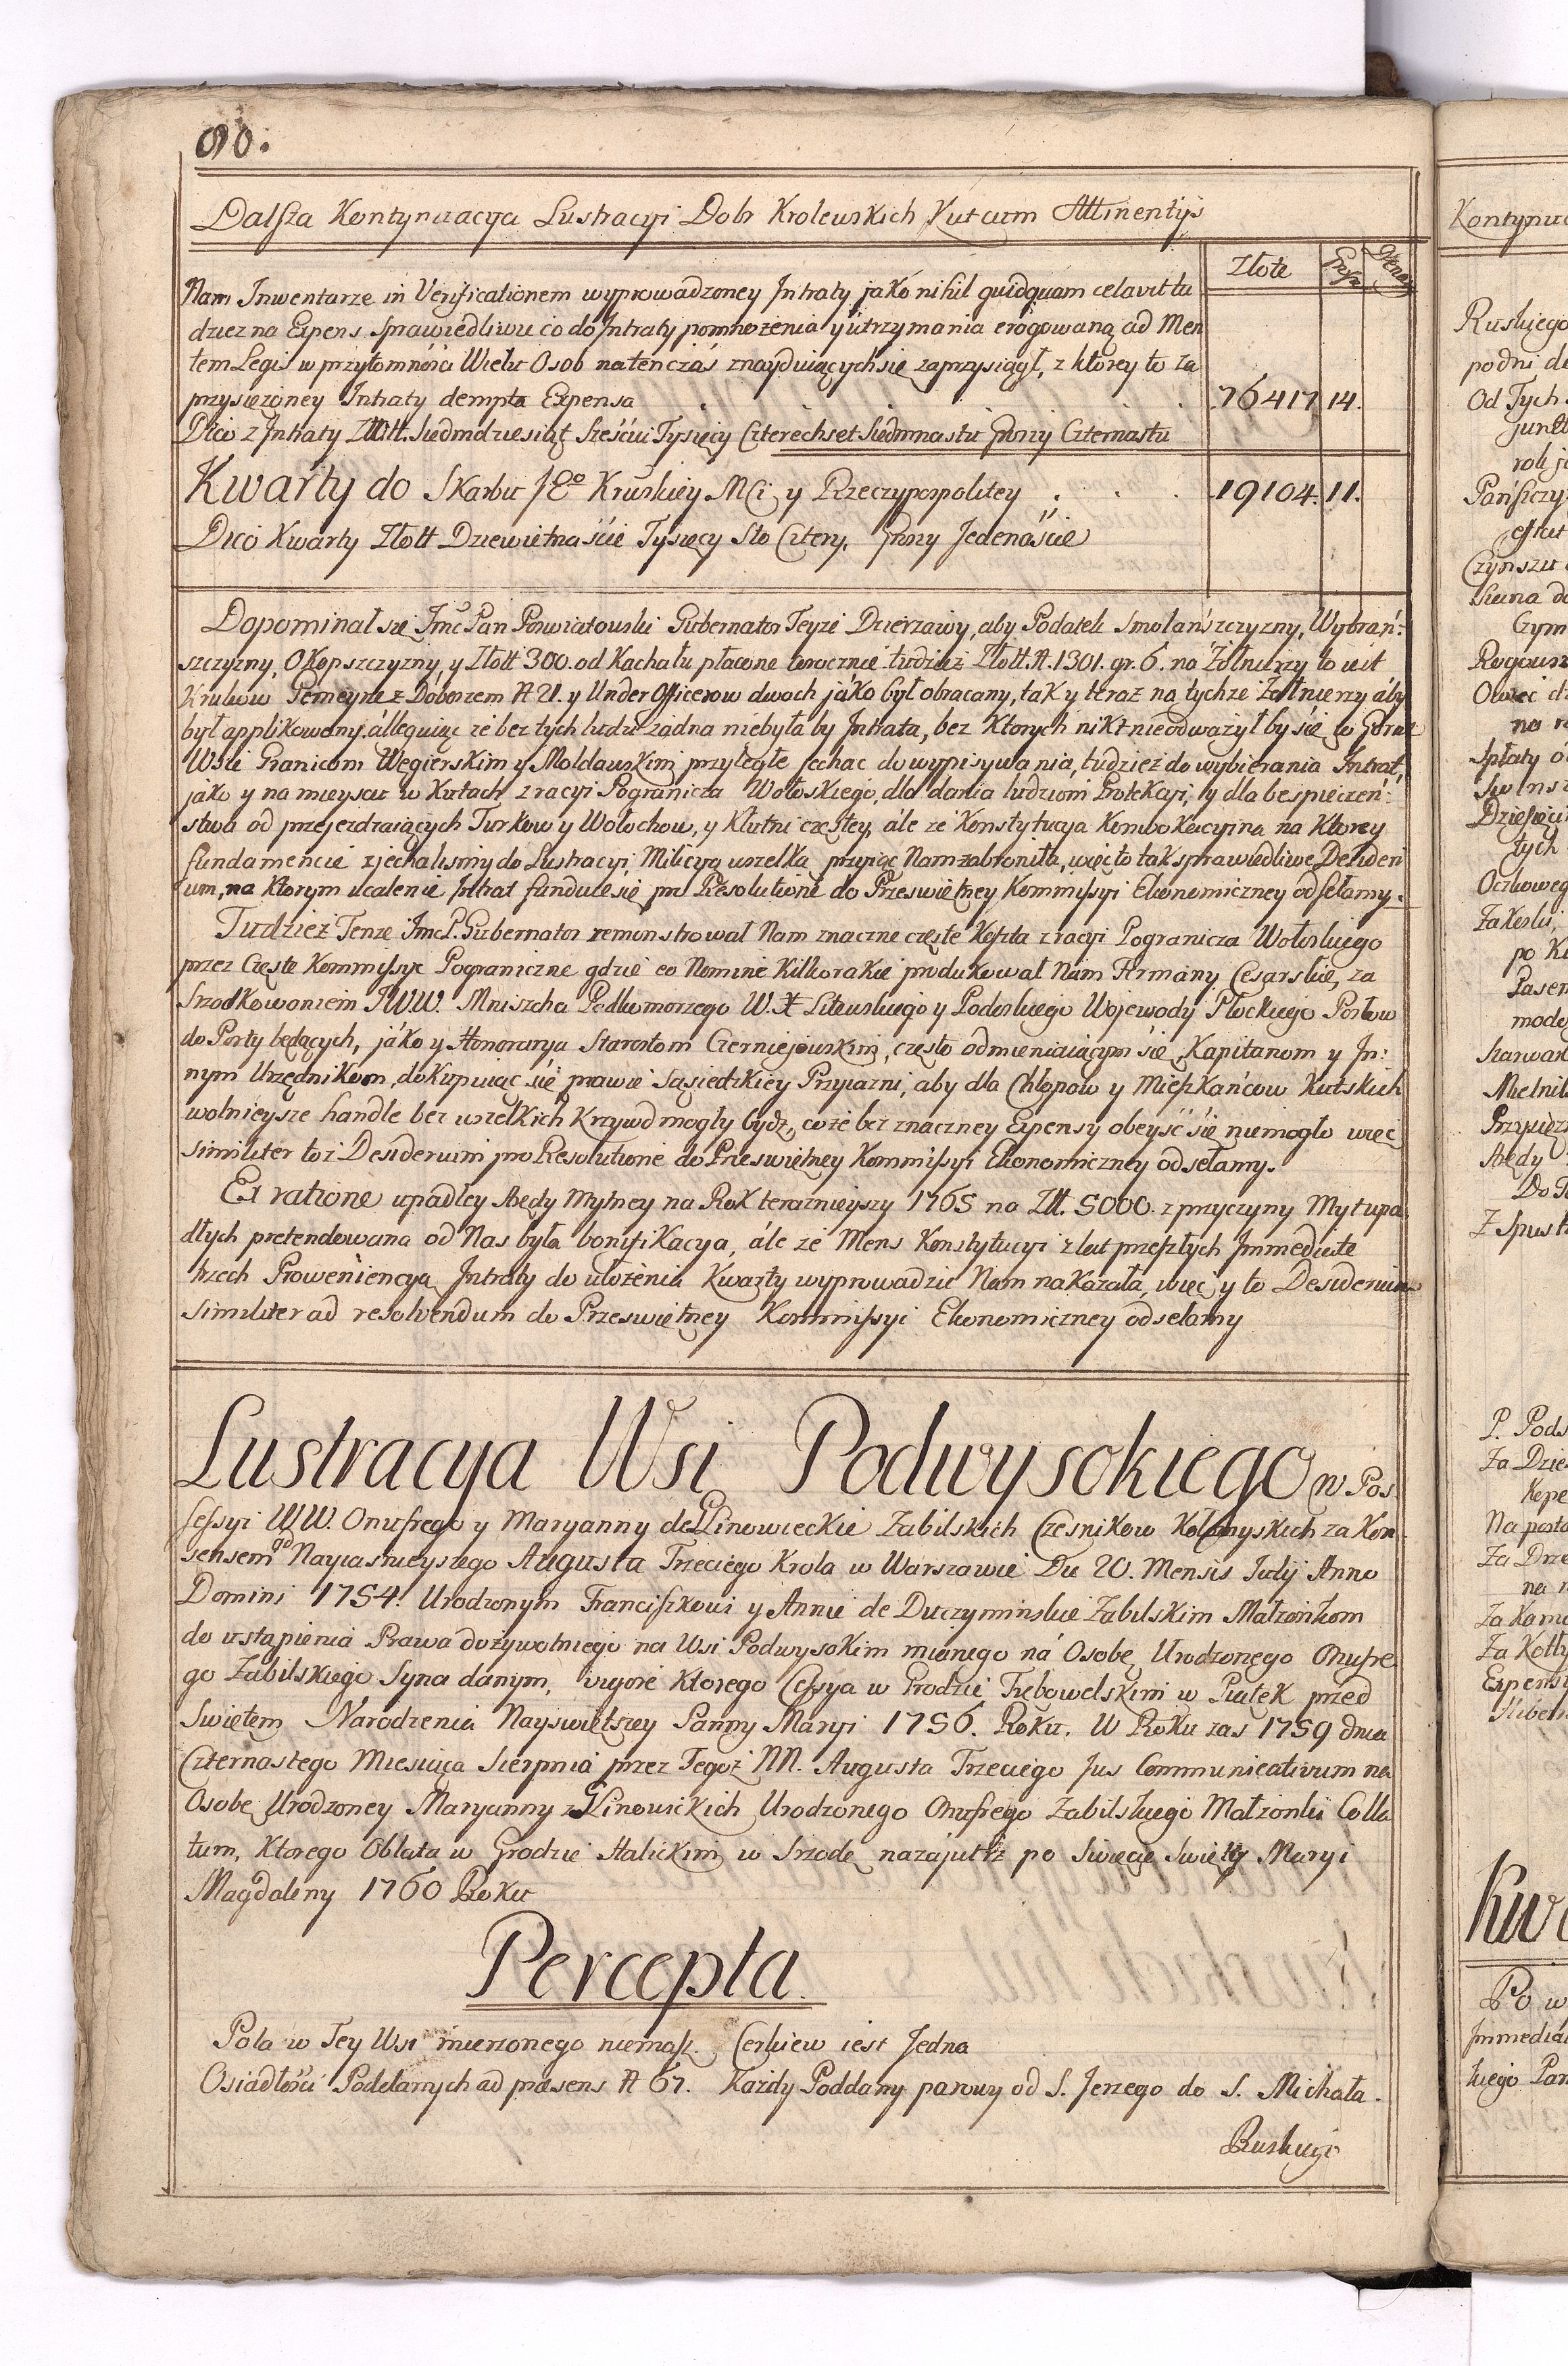 90.
Dalsza Kontynuacya Lustracyi Dobr Krolewskich Kut cum Attinentijs
Złote Grosz Denar
Nam Inwentarze in Verificationem wyprowadzoney Intraty jako nihil quidquam celavit tu
dziez na Expens sprawiedliwu co do Intraty pomnożenia y utrzymania erogowaną ad Men
tem Legis w przytomności Wielu Osob natenczas znayduiących się zaprzysiągł, z ktorey to za
przysiężoney Intraty dempta Expensa . . . 76417 14.
Dico z Intraty Złott. Siedmdziesiąt Sześciu Tysięcy Czterechset Siedmnastu Groszy Czternastu
Kwarty do Skarbu JEo Krulskiey Mci y Rzeczypospolitey . . . 19104. 11.
Dico Kwarty Złott Dziewietnaście Tysięcy Sto Cztery. Groszy Jedenaście
Dopominał się Jmć Pan Poniatowski Gubernator Teyże Dzierżawy, aby Podatek Smolańszczyzny, Wybrań:
szczyzny, Okopszczyzny, y Złott 300. od Kachału płacone corocznie tudzież Złott. N. 1301. gr. 6. na Żołnierzy to iest
Krulow Pemeyne z Doboszem N 21. y Under Officerow dwoch jáko był obracany, tak y teraz na tychże Żołnierzy áby
był applikowany, állequiąc że bez tych ludzi żadna niebyła by Intrata, bez ktorych nikt nieodważył by się w Gorne
Wsie Granicom Węgierskim y Moldawskim przyległe jechac do wypisywania, tudzież do wybierania Intrat,
jako y na mieyscu w Kutach z racyi Pogranicza Wołoskiego, dla dania ludziom Protekcyi, y dla bespieczeń:
stwa od przejezdzaiących Turkow y Wołochow, y Kłutni częstey, ále że Konstytucya Konwokacyina na Ktorey
fundamencie zjechalismy do Lustracyi, Milicyą wszelką przyiąc Nam zabroniła, więc to tak sprawiedliwe Desideri
um, na ktorym ucalenie Intrat funduie się pro Resolutione do Prześwietney Kommissyi Ekonomiczney odsełamy.
Tudzież Tenże Jmć P. Gubernator remonstrował Nam znaczne częste Koszta z racyi Pogranicza Wołoskiego
przez Częste Kommissye Pograniczne gdzie eo Nomine Kilkorakie produkował Nam Firmany Cesarskie, za
Srzodkowaniem JWW. Mniszcha Podkomorzego W. X Litewskiego y Podoskiego Wojewody Płockiego Posłow
do Porty będących, jáko y Honorarya Starostom Czerniejowskim, często odmieniaiącym się, Kapitanom y In:
nym Urzędnikom, dokupuiąc się prawie Sąsiedzkiey Przyiazni, aby dla Chłopow y Mieszkańcow Kutskich
wolnieysze handle bez wszelkich Krzywd mogły bydz, co że bez znaczney Expensy obeyść się niemogło więc
similiter toż Desiderium pro Resolutione do Prześwietney Kommissyi Ekonomiczney odsełamy.
Ex ratione upadłey Arędy Mytney na Rok terazniejszy 1765 na Złł. 5000. z przyczyny Myt upa
dłych pretendowana od Nas była bonifikacya, ále że Mens Konstytucyi z lat przeszłych Immediate
trzech Proweniencyą Intraty do ułożenia Kwarty wyprowadzic Nam nakazała, więc y to Desiderium
similiter ad resolvendum do Prześwietney Kommissyi Ekonomiczney odsełamy
Lustracya Wsi Podwysokiego w Pos
sessyi WW. Onufrego y Maryanny de Glinowieckie Zabilskich Czesnikow Kołomyskich za Kon
sensem Nayiasnieyszego Augusta Trzeciego Krola w Warszawie Die 20. Mensis Julij Anno
Domini 1754. Urodzonym Franciszkowi y Annie de Duczyminskie Zabilskim Małżonkom
do ustąpienia Prawa dożywotniego na Wsi Podwysokim mianego ná Osobę Urodzonego Onufre
go Zabilskiego Syna danym, vigore Ktorego Cessya w Grodzie Trębowelskim w Piątek przed
Swiętem Narodzenia Nayswiętszey Panny Maryi 1756. Roku. W Roku zas 1759 dnia
Czternastego Miesiąca Sierpnia przez Tegoż NN. Augusta Trzeciego Jus Communicativum na
Osobę Urodzoney Maryanny z Glinowickich Urodzonego Onufrego Zabilskiego Małżonki Colla
tum, Ktorego Oblata w Grodzie Halickim w Srzodę nazajutrz po Swięcie Swiętey Maryi
Magdaleny 1760 Roku
Percepta.
Pola w Tey Wsi mierzonego niemasz. Cerkiew iest Jedna
Osiadłości Poddanych ad præsens N 67. Każdy Poddany parowy od S. Jerzego do S. Michała.
Ruskiego